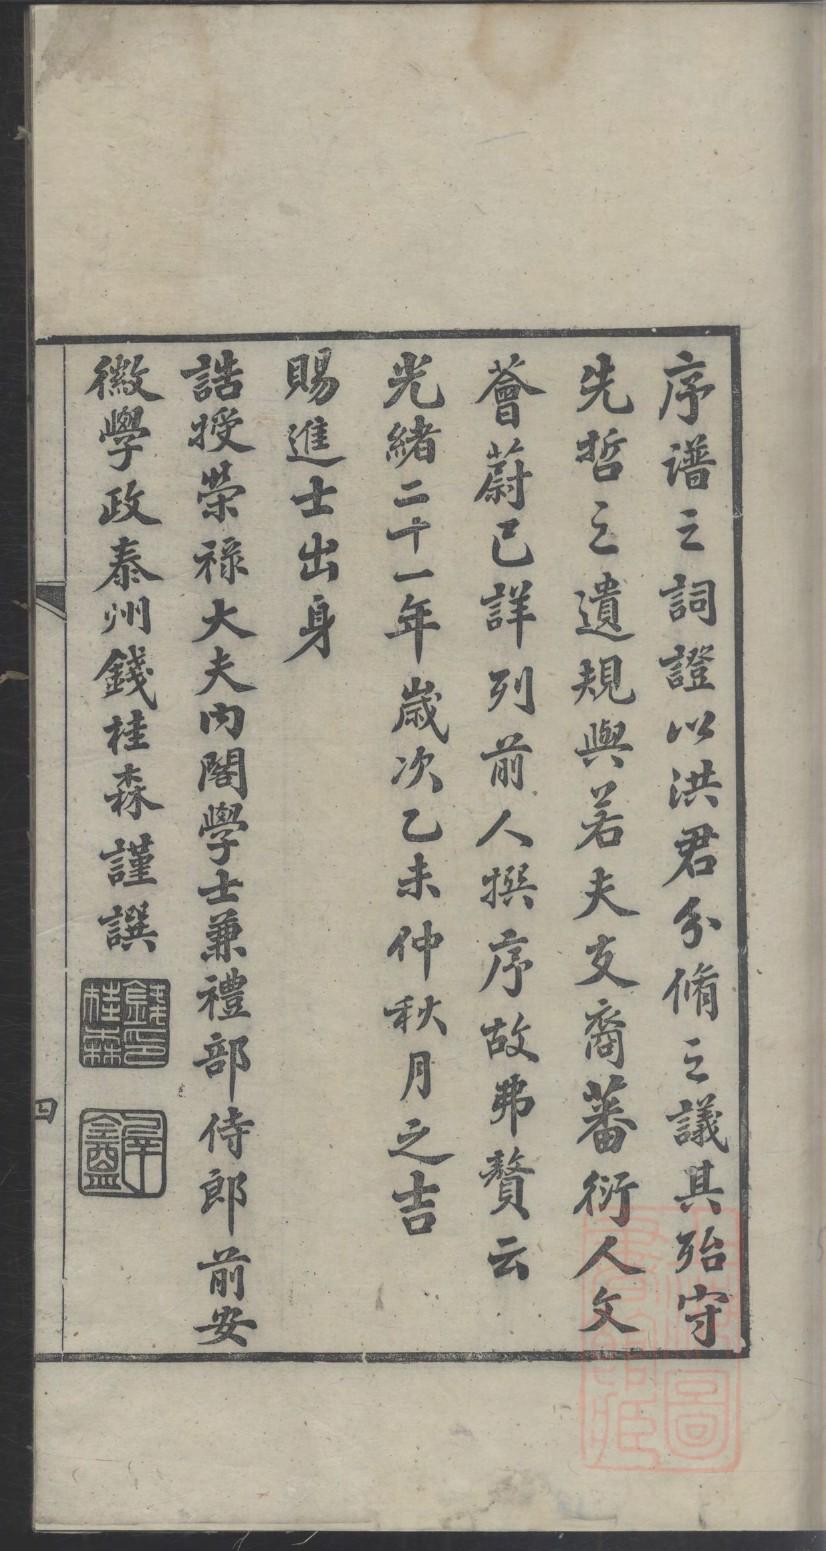 序譜之詞證以洪君分脩之議其殆守
先哲之遺規與若夫支裔蕃衍人文
薈蔚已詳列前人撰序故弗贅云
光緒二十一年歲次乙未仲秋月之吉
賜進士出身
誥授榮祿大夫內閣學士兼禮部侍郎前安
徽學政泰州錢桂森謹譔
錢桂森印
四